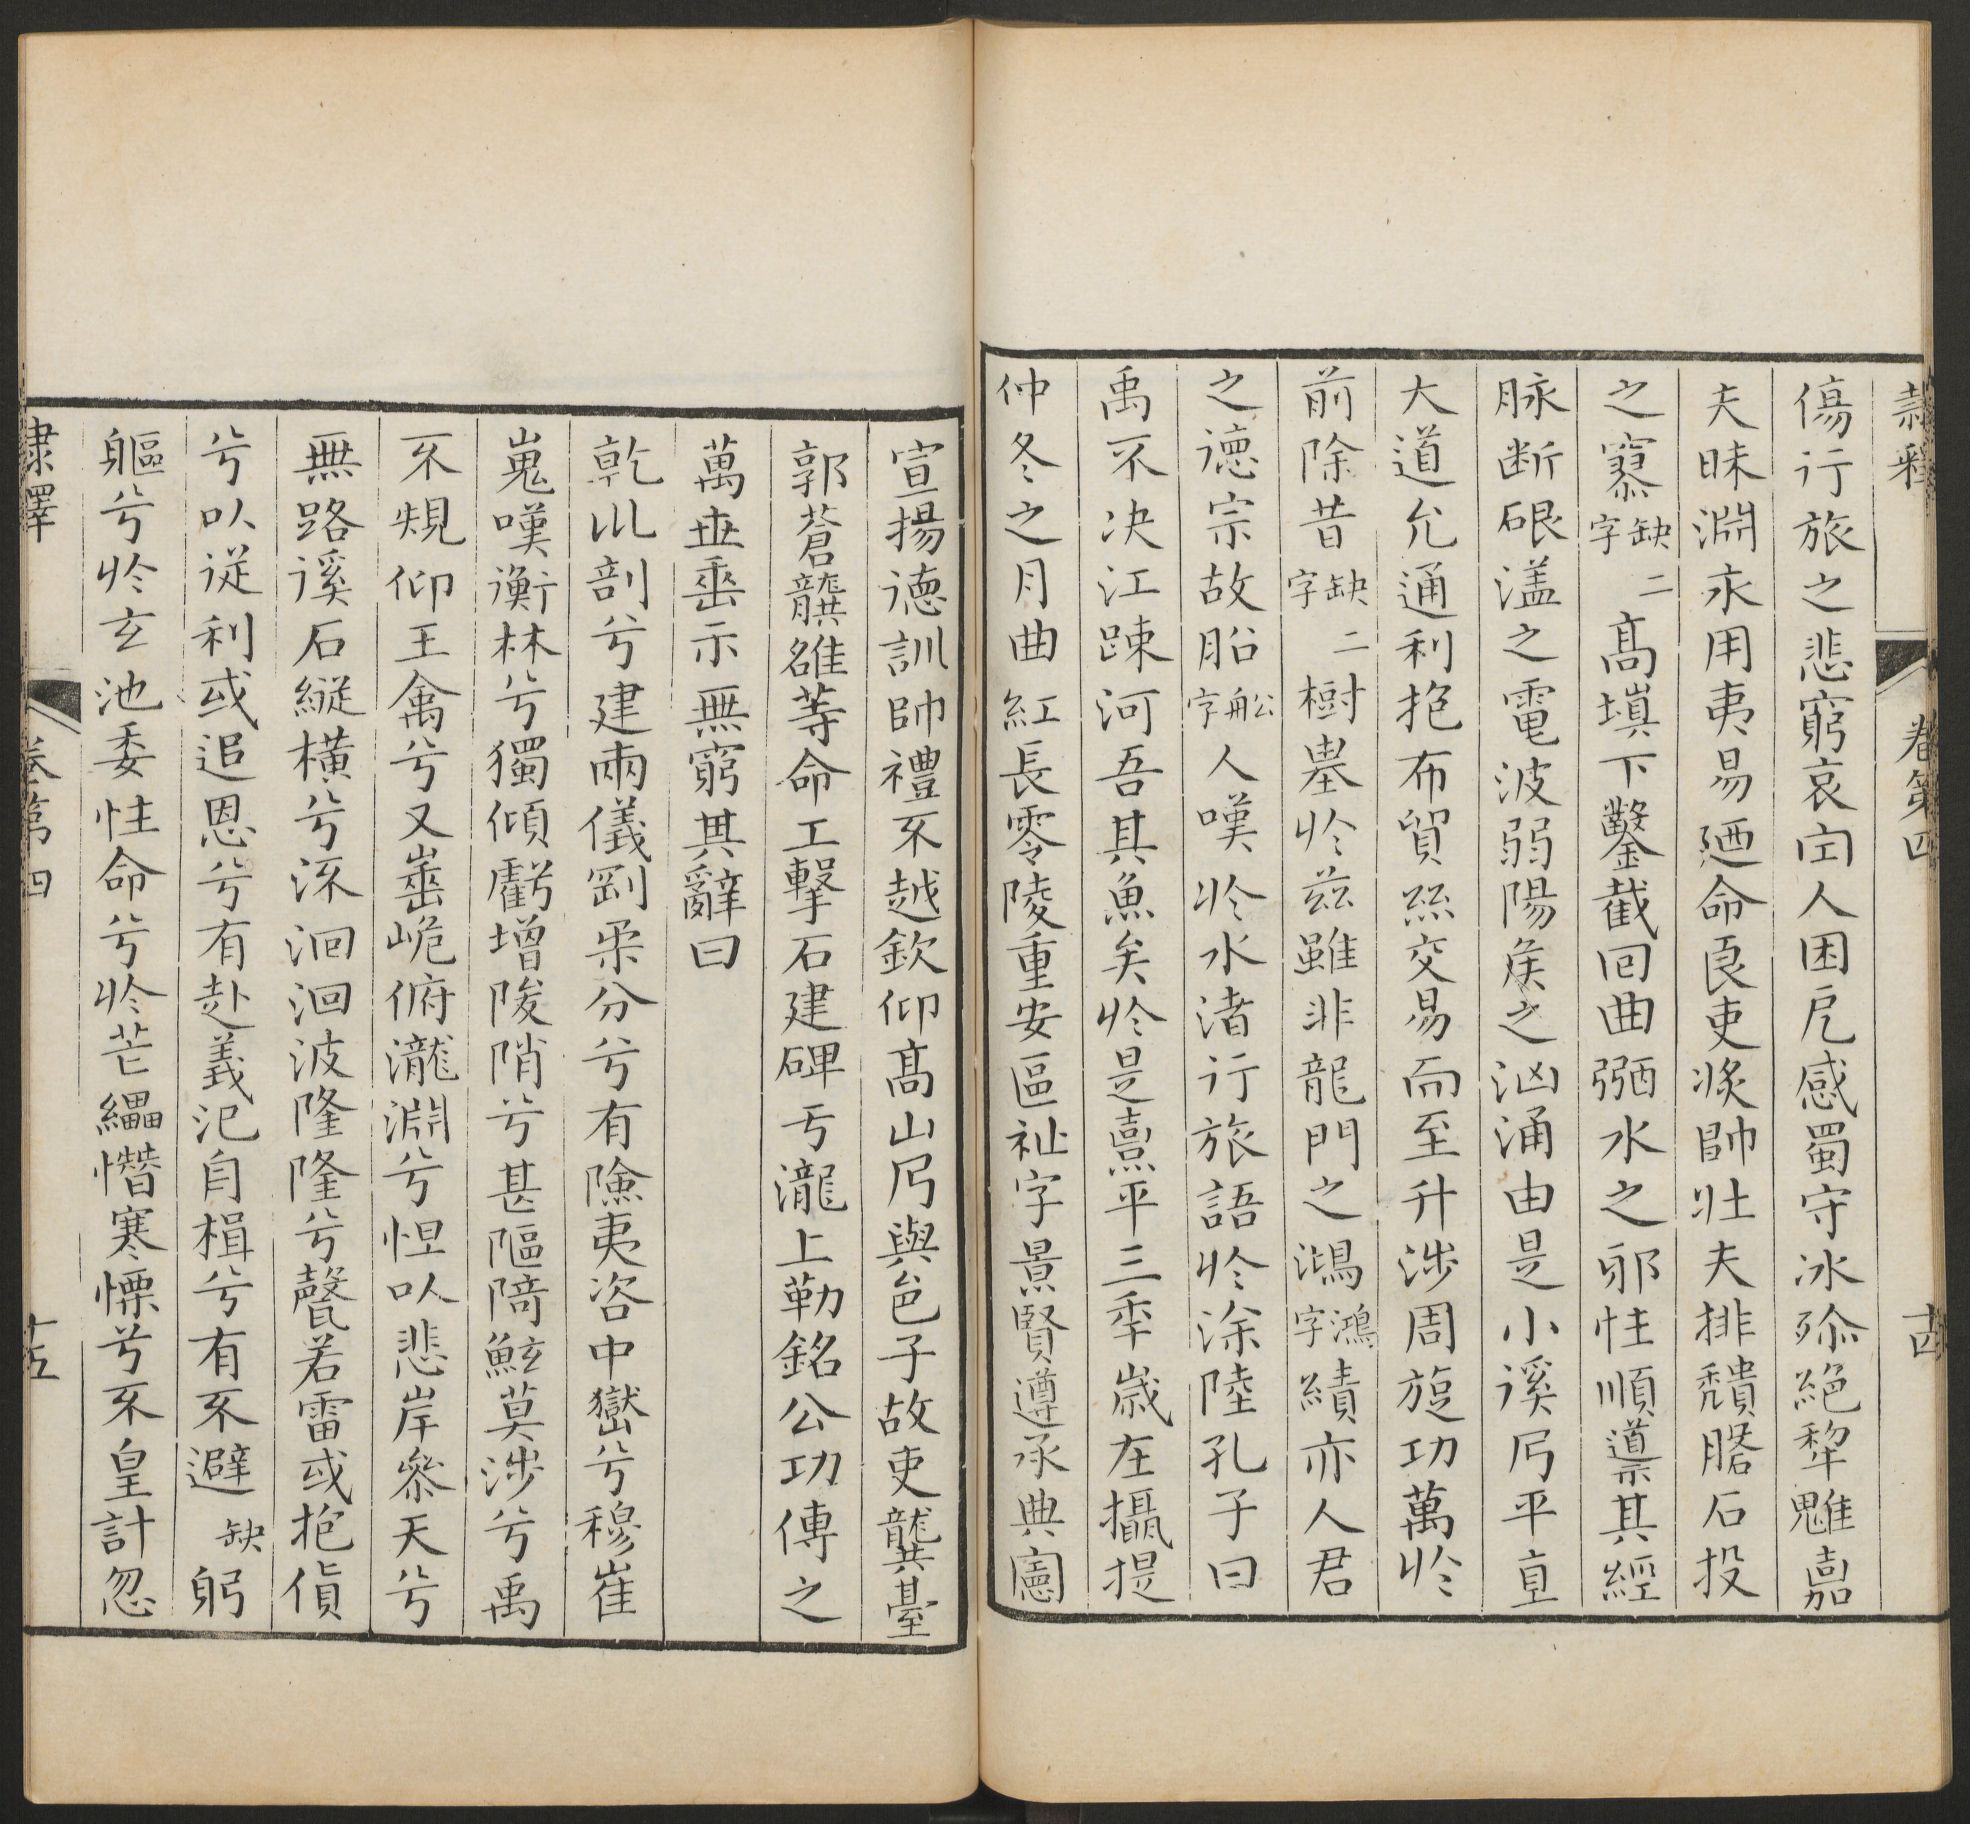 隸釋 卷第四 十四
傷行旅之悲窮哀㓙人困戹感蜀守冰殄絕犂魋嘉
夫昧淵永用夷易廼命良吏將帥壮夫排穨䃜石投
之窮缺二字高填下鑿截回曲弱水之邪性順導其經
脉断硍溘之電波弱陽矦之汹涌由是小溪乃平直
大道允通利抱布貿絲交易而至升涉周旋功萬於
前除昔缺二字樹㙜於兹雖非龍門之鴻鴻字績亦人君
之德宗故胎舩字人嘆於水渚行旅語於涂陸孔子曰
禹不决江踈河吾其魚矣於是熹平三秊歲在攝提
仲冬之月曲紅長零陵重安區祉字景賢遵承典憲
宣揚德訓帥禮不越欽仰高山乃與邑子故吏龔臺
郭蒼龔雒等命工擊石建碑于瀧上勒銘公功傳之
萬世垂示無窮其辭曰
乾巛剖兮建兩儀剛柔分兮有險夷咨中嶽兮穆崔
嵬嘆衡林兮獨傾虧增陖陗兮甚隔陭鮌莫涉兮禹
不規仰王禽兮又崋峗俯瀧淵兮怛以悲岸參天兮
無路溪石縱橫兮泳洄洄波隆隆兮聲若雷或抱貨
兮以從利或追恩兮有赴義汜自楫兮有不避缺躬
軀兮於玄池委性命兮於芒繩憯寒慄兮不皇計忽
隸釋 卷第四 十五